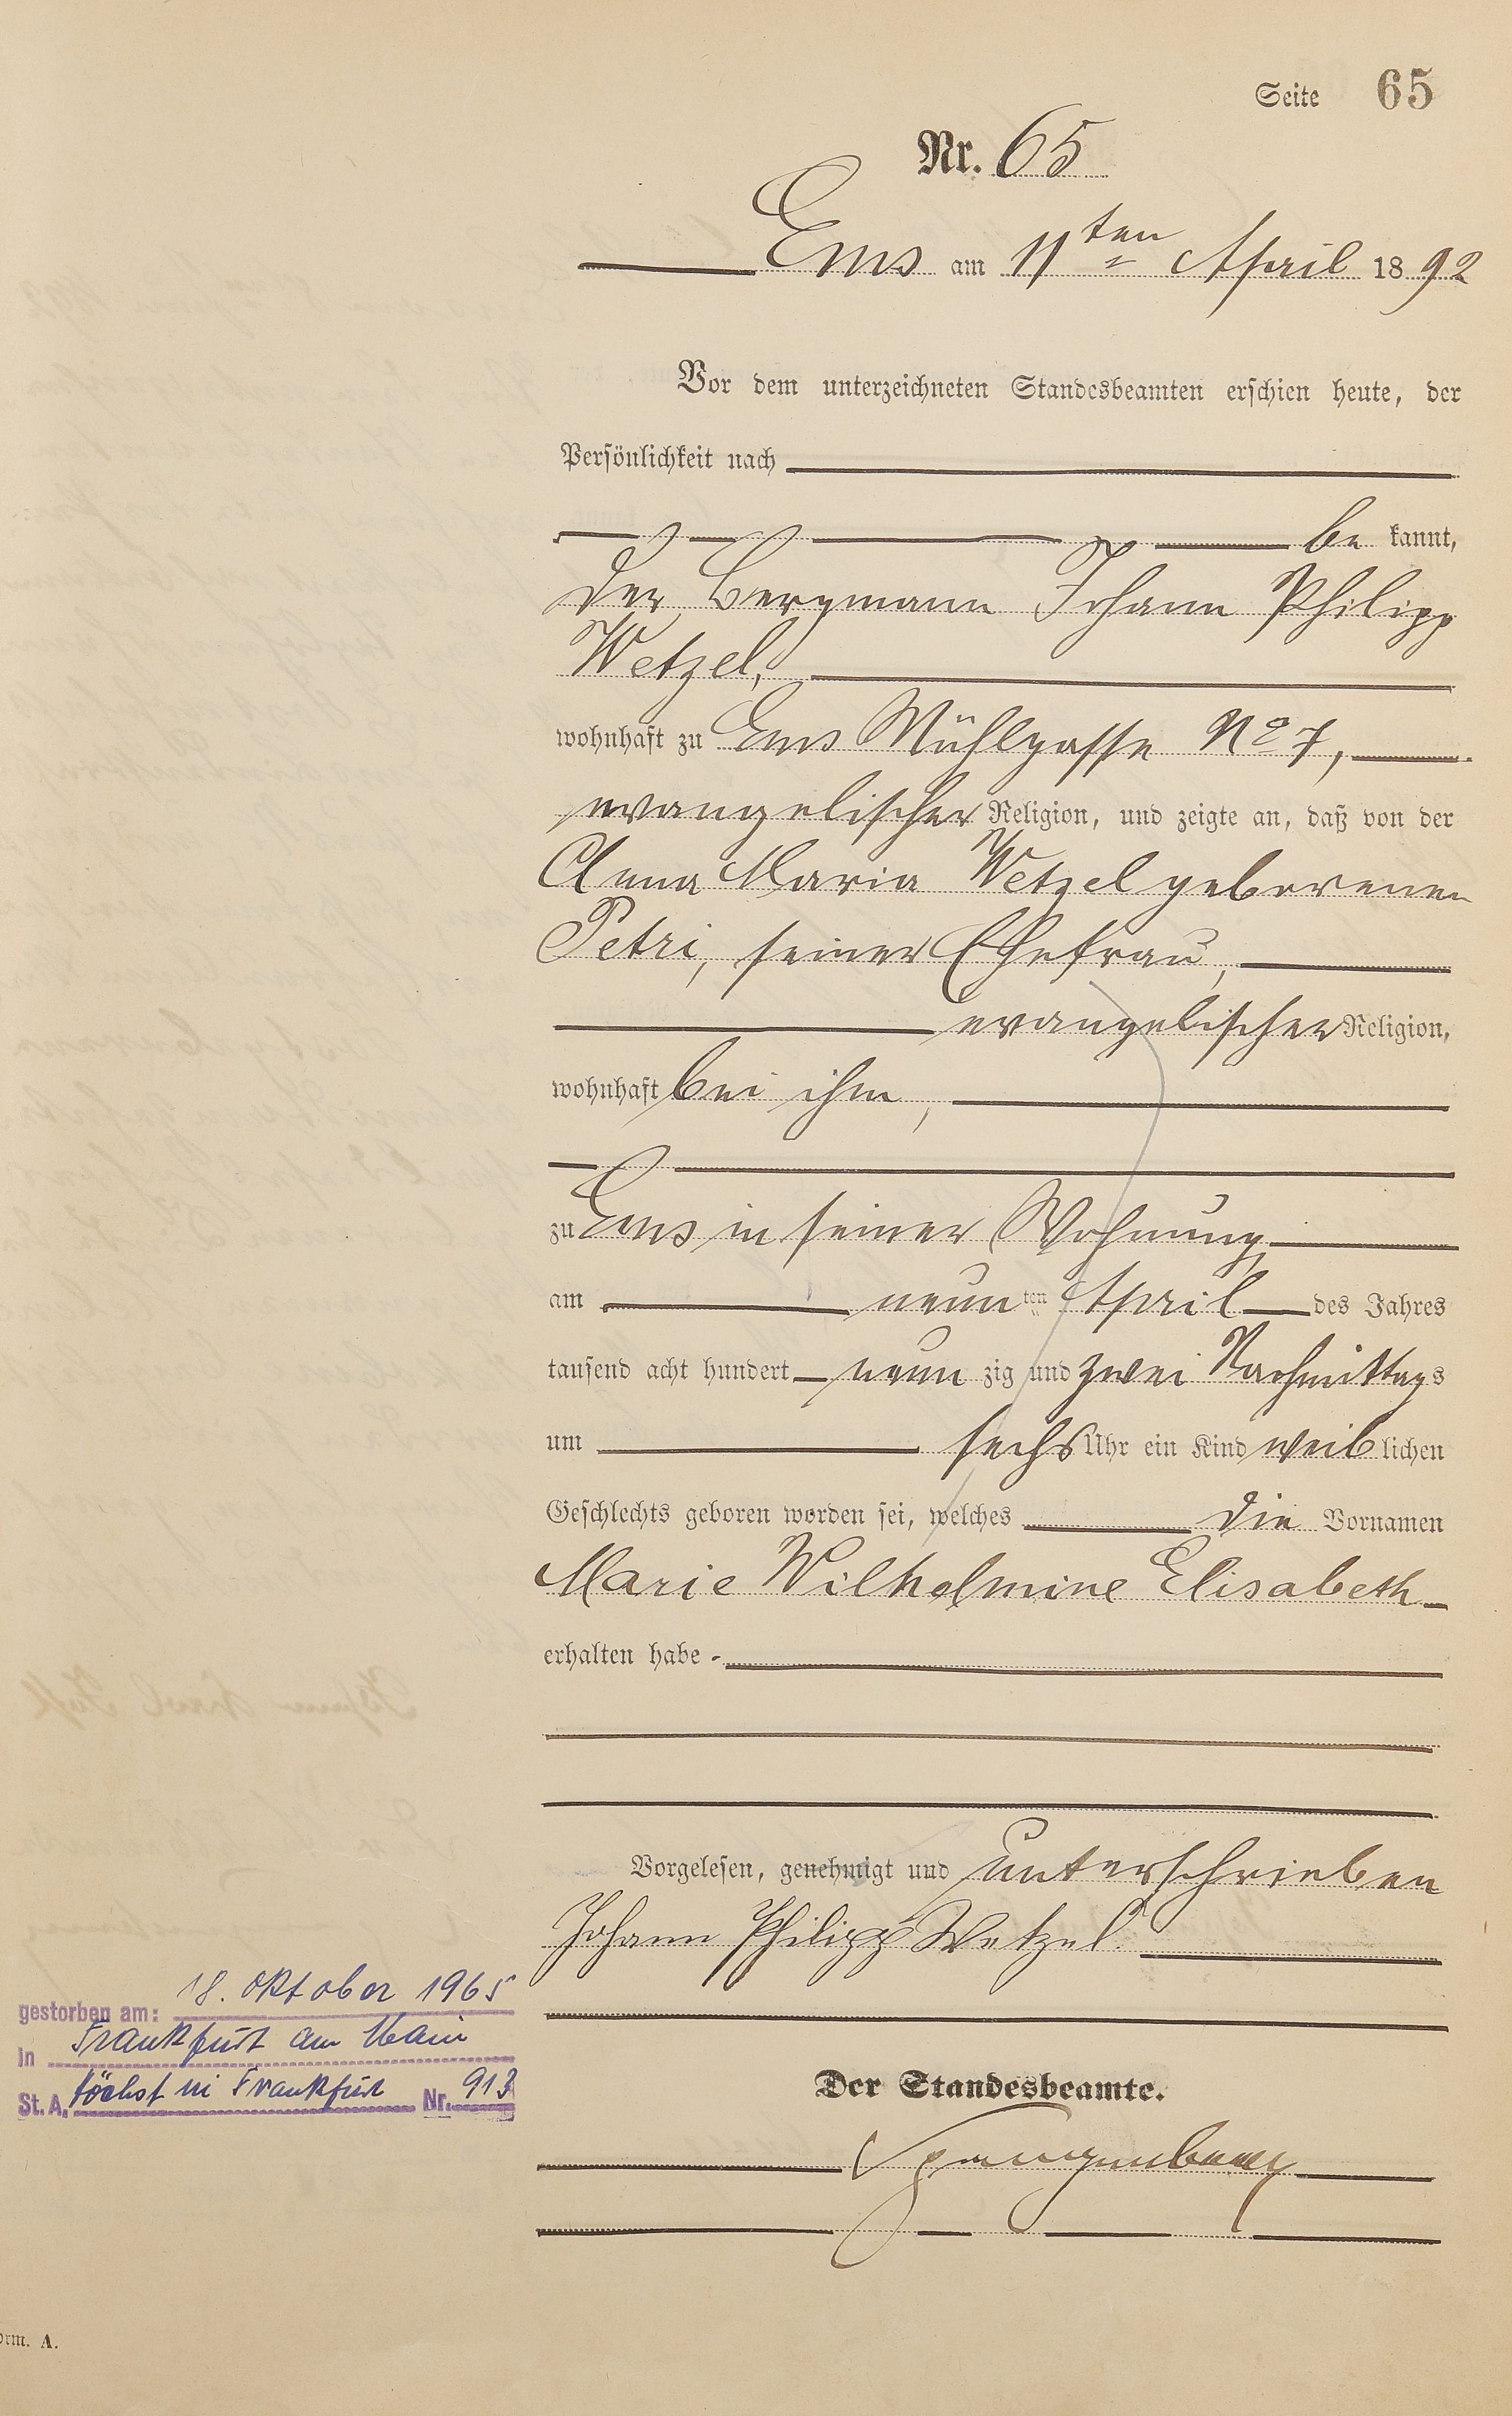 Seite 65
Nr. 65
Ems am 11ten April 1892
Vor dem unterzeichneten Standesbeamten erschien heute, der
Persönlichkeit nach
be kannt,
der Bergmann Johann Philipp
Wetzel,
wohnhaft zu Ems Mühlgasse No 7,
evangelischer Religion, und zeigte an, daß von der
Anna Maria Wetzel geborenen
Petri, seiner Ehefrau,
evangelischer Religion,
wohnhaft bei ihm,
zu Ems in seiner Wohnung,
am neunten April des Jahres
tausend acht hundert neun zig und zwei Nachmittags
um sechs Uhr ein Kind weiblichen
Geschlechts geboren worden sei, welches die Vornamen
Marie Wilhelmine Elisabeth
erhalten habe
Vorgelesen, genehmigt und unterschrieben
Johann Philipp Wetzel.
gestorben am: 18. Oktober 1965
in Frankfurt am Main
St. A. Höchst in Frankfurt Nr. 913
Der Standesbeamte.
Spangenberg
orm. A.